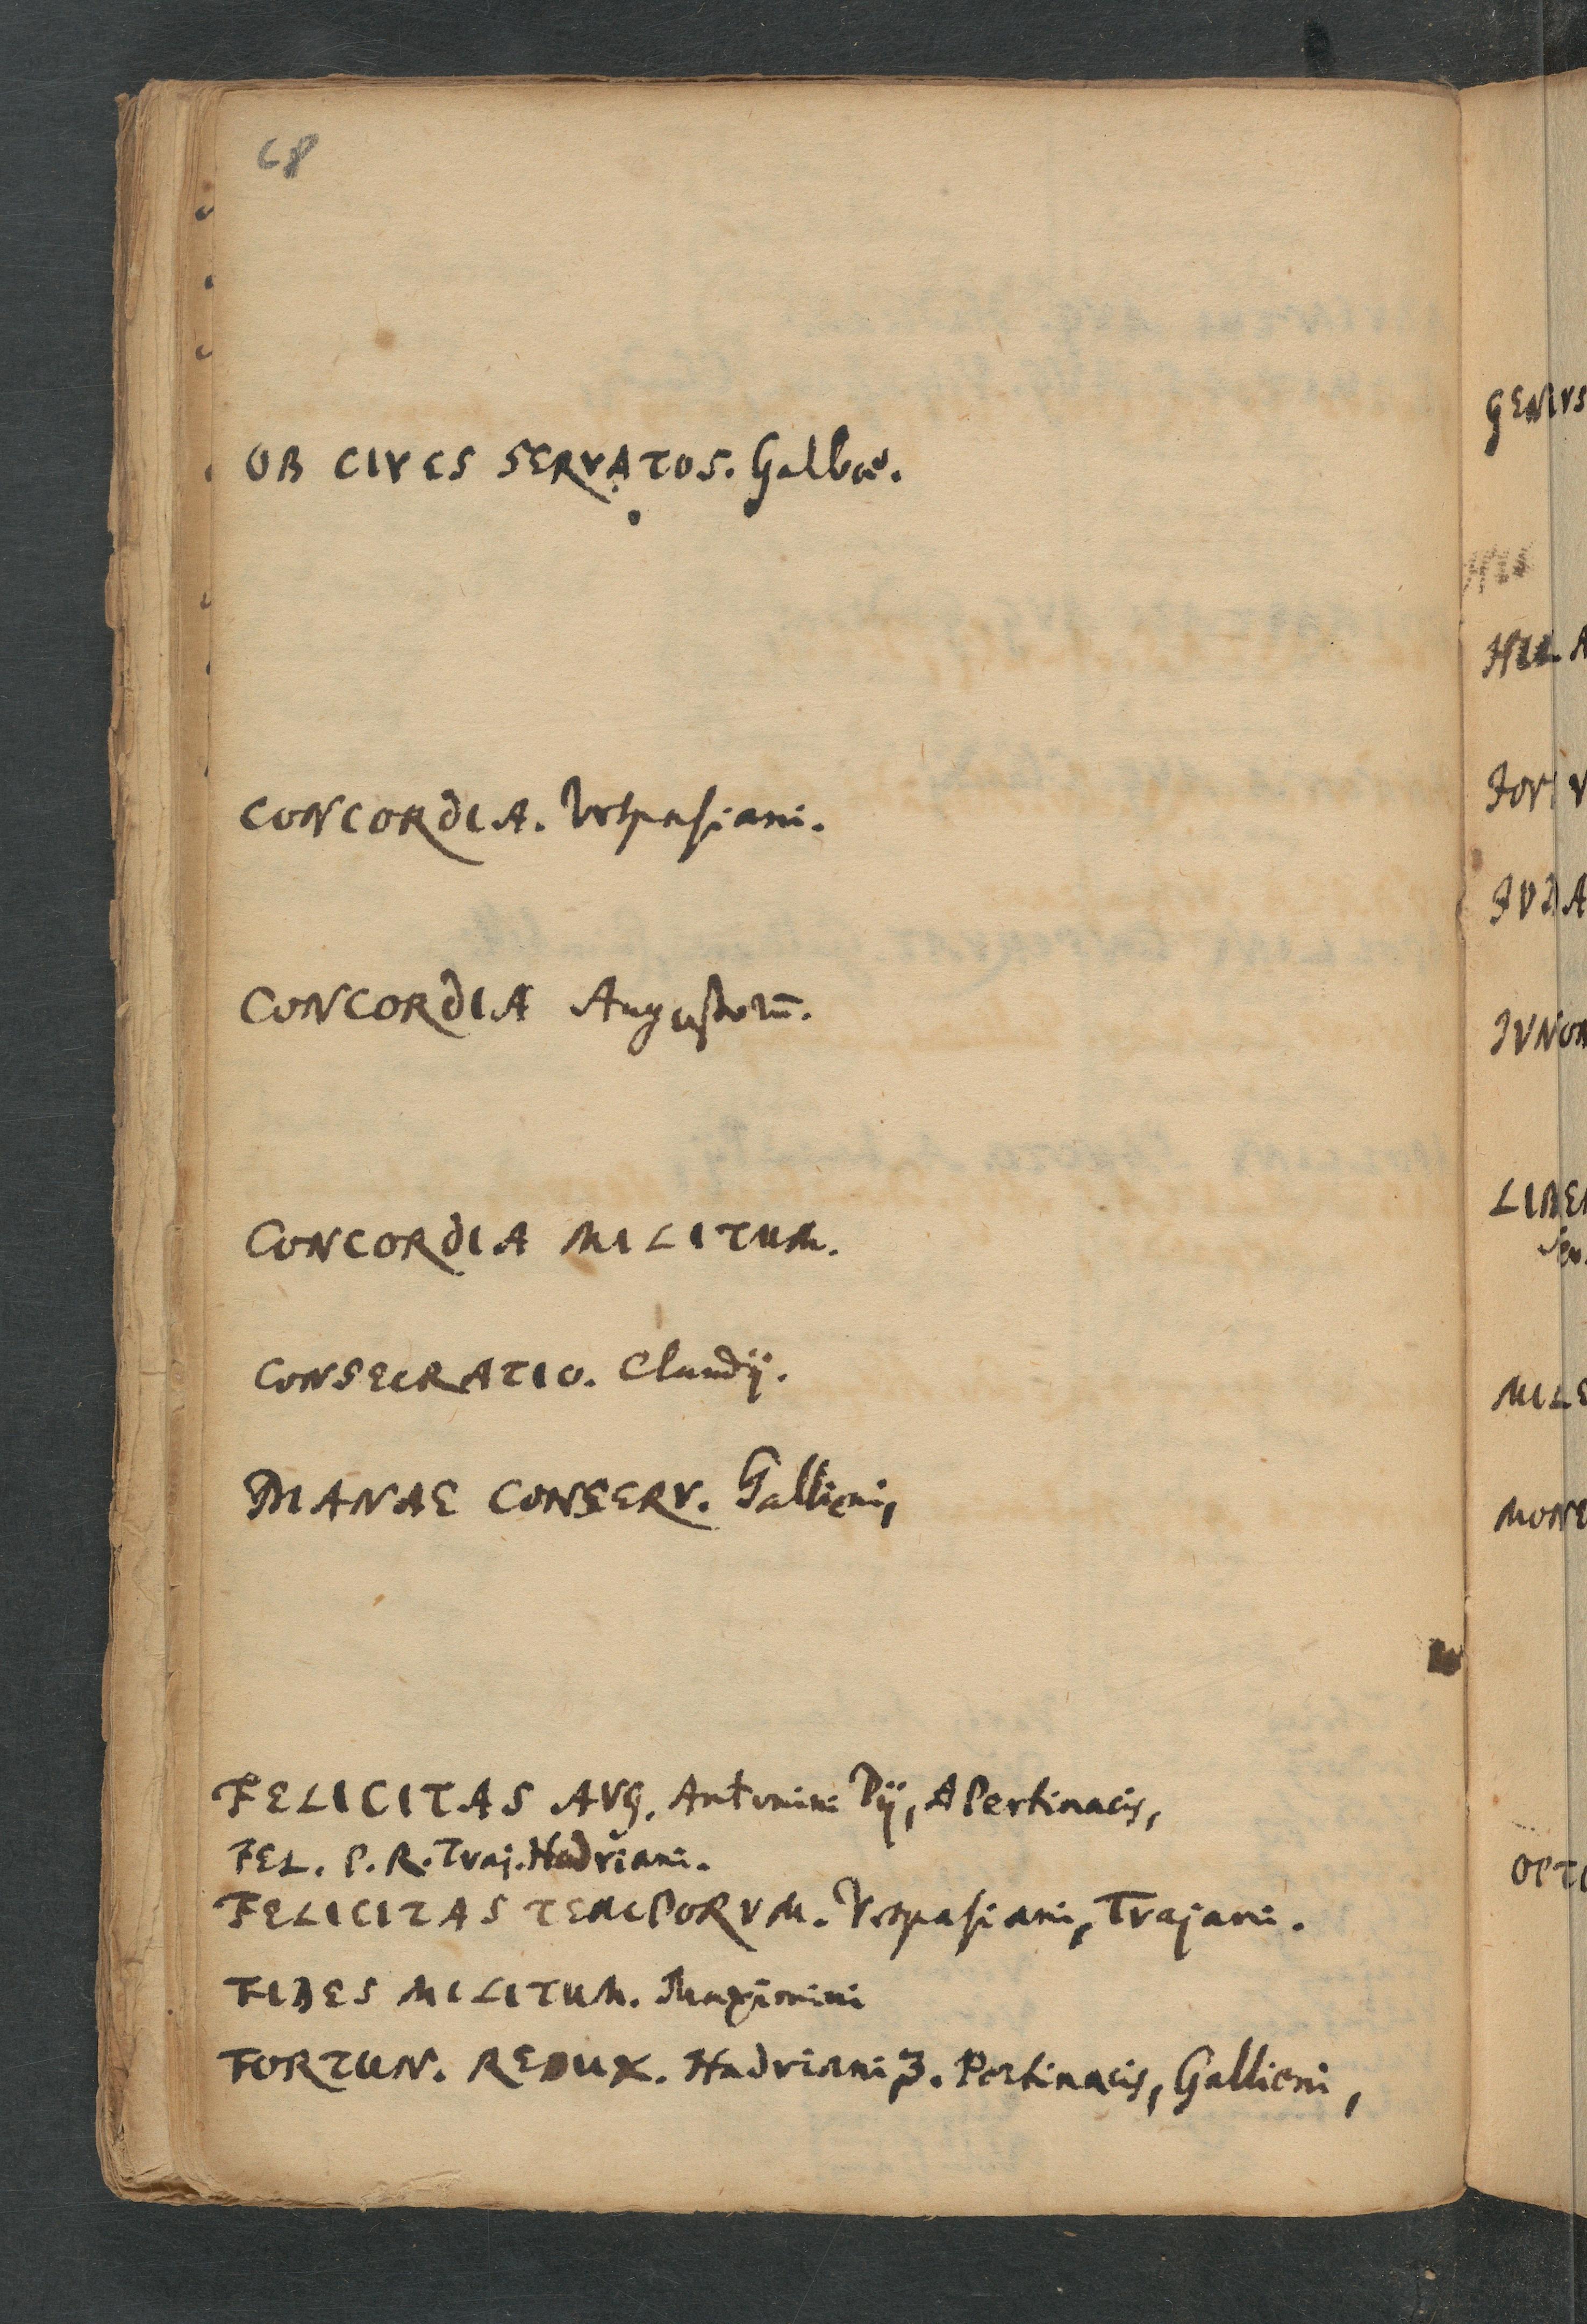 68
OB CIVES SERVATOS. Galbæ.
CONCORDIA. Vespasiani.
CONCORDIA Augustorū.
CONCORDIA MILITUM.
CONSECRATIO. Claudij.
DIANAE CONSERV. Gallieni,
FELICITAS AVG. Antonini Pij, A Pertinacis,
FEL. P. R. Traj. Hadriani.
FELICITAS TEMPORVM. Vespasiani, Trajani.
FIDES MILITUM. Maximini
FORTUN. REDUX. Hadriani 3. Pertinacis, Gallieni,
GENIUS
HIL
HILA
FORV
JUDA
JUNON
LIBER
MILE
MONE
OPT